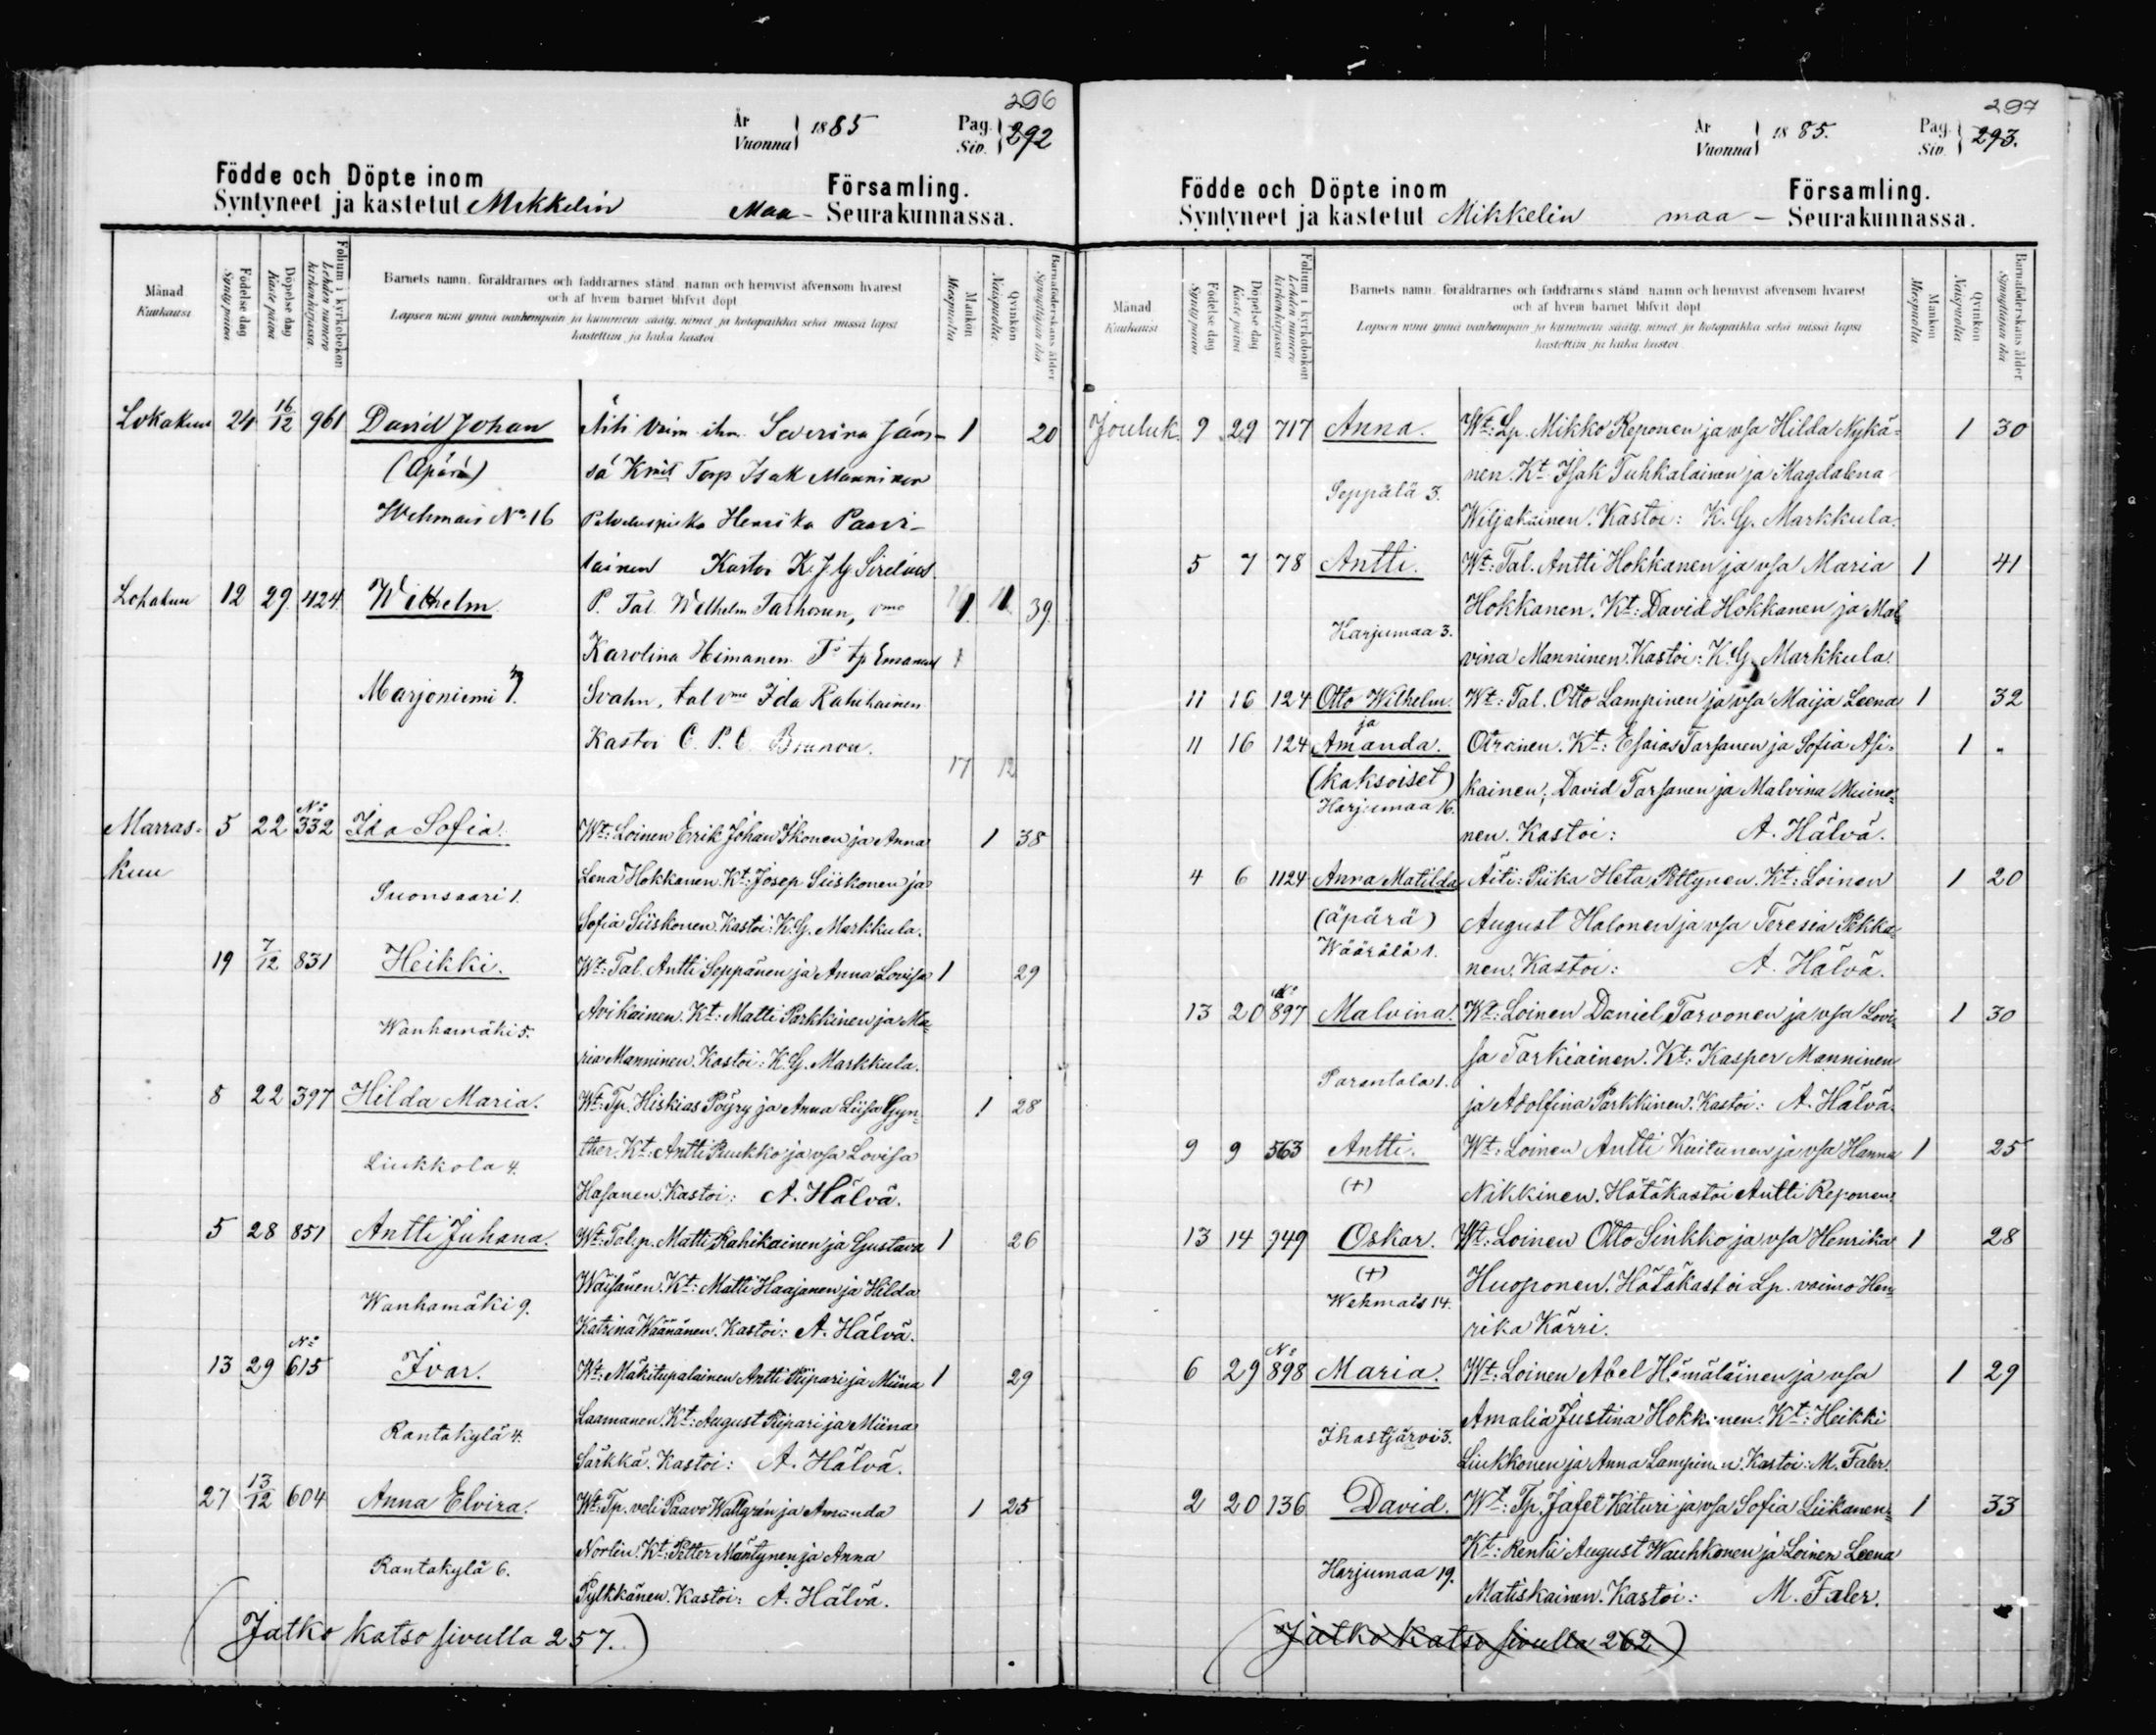 296
År Vuonna 1885 Pag. Siv. 292
Födde och Döpte inom Församling.
Syntyneet ja kastetut Mikkelin Maa- Seurakunnassa.
Månad Kuukausi
Födelse dag Syntypäivä
Döpelse dag Kaste päivä
Folium i kyrkoboken Lehden numero kirkonkirjassa
Barnets namn, föräldrarnes och faddrarnes stånd, namn och hemvist äfvensom hvarest
och af hvem barnet blifvit döpt
Lapsen nimi ynnä vanhempain ja kummein sääty, nimet ja kotopaikka sekä missä lapsi
kastettiin ja kuka kastoi
Mankön Miespuolia
Qvinkön Naispuolia
Barnaföderskans ålder Synnyttäjän ikä
Lokakuu 24 16/12 961 David Johan Äiti Vaim. ihm. Severina Jäm- 1 20
(Äpärä) sä Kmit Torp Isak Manninen
Wehmais No 16 Palveluspiika Henrika Paavi-
lainen Kastoi K J G Sirelius
Lokakuu 12 29 424 Wilhelm P. Tal. Wilhelm Tarhonen, vmo 1 39
Karolina Heimanen Ts tp Emanuel
Marjoniemi 7. Svahn, tal vmo Ida Rahikainen
Kastoi C. P. C. Brunou.
17 12
Marras- 5 22 No 332 Ida Sofia. Wt: Loinen Erik Johan Ikonen ja Anna 1 38
kuu Lena Hokkanen. Kt: Josep Siiskonen ja
Suonsaari 1. Sofia Siiskonen. Kastoi: K. G. Markkula.
19 7/12 831 Heikki. Wt: Tal. Antti Seppänen ja Anna Lovisa 1 29
Avikainen. Kt: Matti Parkkinen ja Ma-
Wanhamäki 5. ria Manninen. Kastoi: K. G. Markkula.
8 22 397 Hilda Maria. Wt: Tp. Hiskias Pöyry ja Anna Liisa Gyn- 1 28
ther. Kt: Antti Kuukko ja vsa Lovisa
Liukkola 4. Hasanen. Kastoi: A. Hälvä.
5 28 851 Antti Juhana. Wt: Tal.p. Matti Rahikainen ja Gustava 1 26
Wäisänen. Kt: Matti Haajanen ja Hilda
Wanhamäki 9. Katrina Wäänänen. Kastoi: A. Hälvä.
13 29 No 615 Ivar. Wt: Mäkitupalainen Antti Riipari ja Miina 1 29
Laamanen. Kt: August Riipari ja Miina
Rantakylä 4. Särkkä. Kastoi: A. Hälvä.
27 13/12 604 Anna Elvira. Wt: Tp. veli Paavo Wallgrén ja Amanda 1 25
Norlin. Kt: Petter Mäntynen ja Anna
Rantakylä 6. Pylkkänen. Kastoi: A. Hälvä.
(Jatko katso sivulla 257.)
297
År Vuonna 1885. Pag. Siv. 293.
Födde och Döpte inom Församling.
Syntyneet ja kastetut Mikkelin maa- Seurakunnassa.
Månad Kuukausi
Födelse dag Syntypäivä
Döpelse dag Kaste päivä
Folium i kyrkoboken Lehden numero kirkonkirjassa
Barnets namn, föräldrarnes och faddrarnes stånd, namn och hemvist äfvensom hvarest
och af hvem barnet blifvit döpt
Lapsen nimi ynnä vanhempain ja kummein sääty, nimet ja kotopaikka sekä missä lapsi
kastettiin ja kuka kastoi
Mankön Miespuolia
Qvinkön Naispuolia
Barnaföderskans ålder Synnyttäjän ikä
Jouluk. 9 29 717 Anna. Wt: Lp. Mikko Reponen ja vsa Hilda Nykä- 1 30
nen. Kt: Isak Tuhkalainen ja Magdalena
Seppälä 3. Wiljakainen. Kastoi: K. G. Markkula.
5 7 78 Antti. Wt: Tal. Antti Hokkanen ja vsa Maria 1 41
Hokkanen. Kt: David Hokkanen ja Mal-
Harjumaa 3. vina Manninen. Kastoi: K. G. Markkula.
11 16 124 Otto Wilhelm. Wt: Tal. Otto Lampinen ja vsa Maija Leena 1 32
ja
11 16 124 Amanda. Otronen. Kt: Esaias Tarsanen ja Sofia Asi- 1 "
(kaksoiset) kainen; David Tarsanen ja Malvina Muino-
Harjumaa 16. nen. Kastoi: A. Hälvä.
4 6 1124 Anna Matilda Äiti: Piika Heta Pöllynen. Kt: Loinen 1 20
(äpärä) August Halonen ja vsa Teresia Pekka-
Wäärälä 1. nen. Kastoi: A. Hälvä.
13 20 No 897 Malvina. Wt: Loinen Daniel Tarvonen ja vsa Lovi- 1 30
sa Tarkiainen. Kt: Kasper Manninen
Parantala 1. ja Adolfina Parkkinen. Kastoi: A. Hälvä.
9 9 563 Antti. Wt: Loinen Antti Kuitunen ja vsa Hanna 1 25
(+) Nikkinen. Hätäkastoi Antti Reponen.
13 14 949 Oskar. Wt: Loinen Otto Sinkko ja vsa Henrika 1 28
(+) Huoponen. Hätäkastoi Lp. vaimo Hen-
Wehmais 14. rika Kärri.
6 29 No 898 Maria. Wt: Loinen Abel Hämäläinen ja vsa 1 29
Amalia Justina Hokkanen. Kt: Heikki
Ihastjärvi 3. Liukkonen ja Anna Lampinen. Kastoi: M. Faler.
2 20 136 David. Wt: Tp. Jafet Keituri ja vsa Sofia Liikanen. 1 33
Kt: Renki August Wauhkonen ja Loinen Leena
Harjumaa 19. Matiskainen. Kastoi: M. Faler.
(Jatko katso sivulla 262)